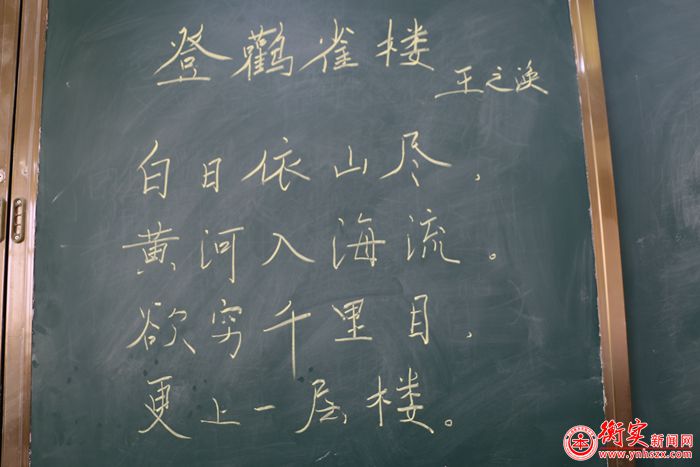 登鹳雀楼
王之涣
白日依山尽，
黄河入海流。
欲穷千里目，
更上一层楼。
衡实新闻网
www.ynhszx.com